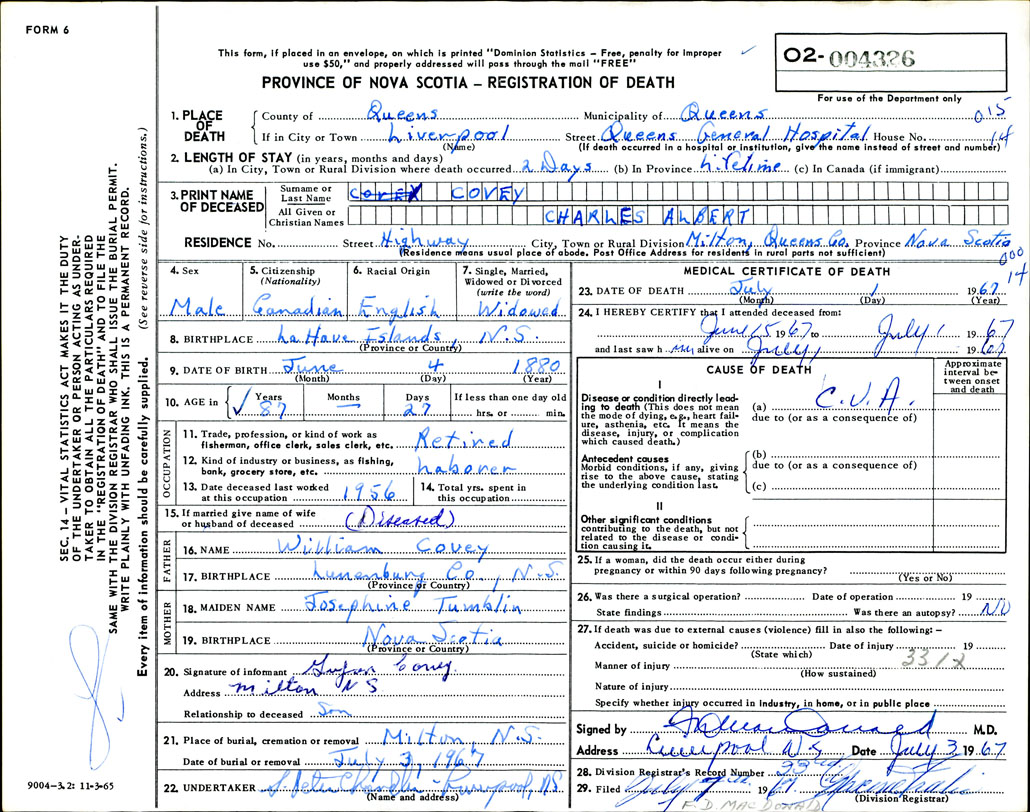 FORM 6
This form, if placed in an envelope, on which is printed "Dominion Statistics – Free, penalty for improper
use $50," and properly addressed will pass through the mail "FREE"
PROVINCE OF NOVA SCOTIA – REGISTRATION OF DEATH
02-004326
For use of the Department only
015
14
1. PLACE OF DEATH
County of Queens Municipality of Queens
If in City or Town Liverpool Street Queens General Hospital House No.
(Name) (If death occurred in a hospital or institution, give the name instead of street and number)
2. LENGTH OF STAY (in years, months and days)
(a) In City, Town or Rural Division where death occurred 2 Days (b) In Province Lifetime (c) In Canada (if immigrant)
3. PRINT NAME OF DECEASED
Surname or Last Name COVEY COVEY
All Given or Christian Names CHARLES ALBERT
RESIDENCE No. Street Highway City, Town or Rural Division Milton, Queens Co. Province Nova Scotia
(Residence means usual place of abode. Post Office Address for residents in rural parts not sufficient)
000
14
4. Sex Male
5. Citizenship (Nationality) Canadian
6. Racial Origin English
7. Single, Married, Widowed or Divorced (write the word) Widowed
8. BIRTHPLACE La Have Islands, N.S.
(Province or Country)
9. DATE OF BIRTH June 4 1880
(Month) (Day) (Year)
10. AGE in Years 87 Months — Days 27 If less than one day old hrs. or min.
OCCUPATION
11. Trade, profession, or kind of work as fisherman, office clerk, sales clerk, etc. Retired
12. Kind of industry or business, as fishing, bank, grocery store, etc. Laborer
13. Date deceased last worked at this occupation 1956
14. Total yrs. spent in this occupation
15. If married give name of wife or husband of deceased (Diseased)
FATHER
16. NAME William Covey
17. BIRTHPLACE Lunenburg Co., N.S.
(Province or Country)
MOTHER
18. MAIDEN NAME Josephine Tumblin
19. BIRTHPLACE Nova Scotia
(Province or Country)
20. Signature of informant Covey
Address Milton N S
Relationship to deceased Son
21. Place of burial, cremation or removal Milton N.S.
Date of burial or removal July 3, 1967
22. UNDERTAKER Liverpool, N.S.
(Name and address)
MEDICAL CERTIFICATE OF DEATH
23. DATE OF DEATH July 1 1967
(Month) (Day) (Year)
24. I HEREBY CERTIFY that I attended deceased from:
June 15 1967 to July 1 1967
and last saw h im alive on July 1 1967
CAUSE OF DEATH
Approximate interval between onset and death
I
Disease or condition directly leading to death (This does not mean the mode of dying, e.g., heart failure, asthenia, etc. It means the disease, injury, or complication which caused death.)
(a) C.V.A.
due to (or as a consequence of)
Antecedent causes
Morbid conditions, if any, giving rise to the above cause, stating the underlying condition last.
(b)
due to (or as a consequence of)
(c)
II
Other significant conditions
contributing to the death, but not related to the disease or condition causing it.
25. If a woman, did the death occur either during pregnancy or within 90 days following pregnancy?
(Yes or No)
26. Was there a surgical operation? Date of operation 19
State findings Was there an autopsy? NO
27. If death was due to external causes (violence) fill in also the following: –
Accident, suicide or homicide? Date of injury 19
(State which)
Manner of injury
(How sustained)
Nature of injury
Specify whether injury occurred in industry, in home, or in public place
Signed by M.D.
Address Liverpool N S Date July 3 1967
28. Division Registrar's Record Number
29. Filed July 1967
(Division Registrar)
F. D. MACDONALD
SEC. 14 – VITAL STATISTICS ACT MAKES IT THE DUTY
OF THE UNDERTAKER OR PERSON ACTING AS UNDER-
TAKER TO OBTAIN ALL THE PARTICULARS REQUIRED
IN THE "REGISTRATION OF DEATH" AND TO FILE THE
SAME WITH THE DIVISION REGISTRAR WHO SHALL ISSUE THE BURIAL PERMIT.
WRITE PLAINLY WITH UNFADING INK. THIS IS A PERMANENT RECORD.
Every item of information should be carefully supplied. (See reverse side for instructions.)
9004-3.2: 11-3-65